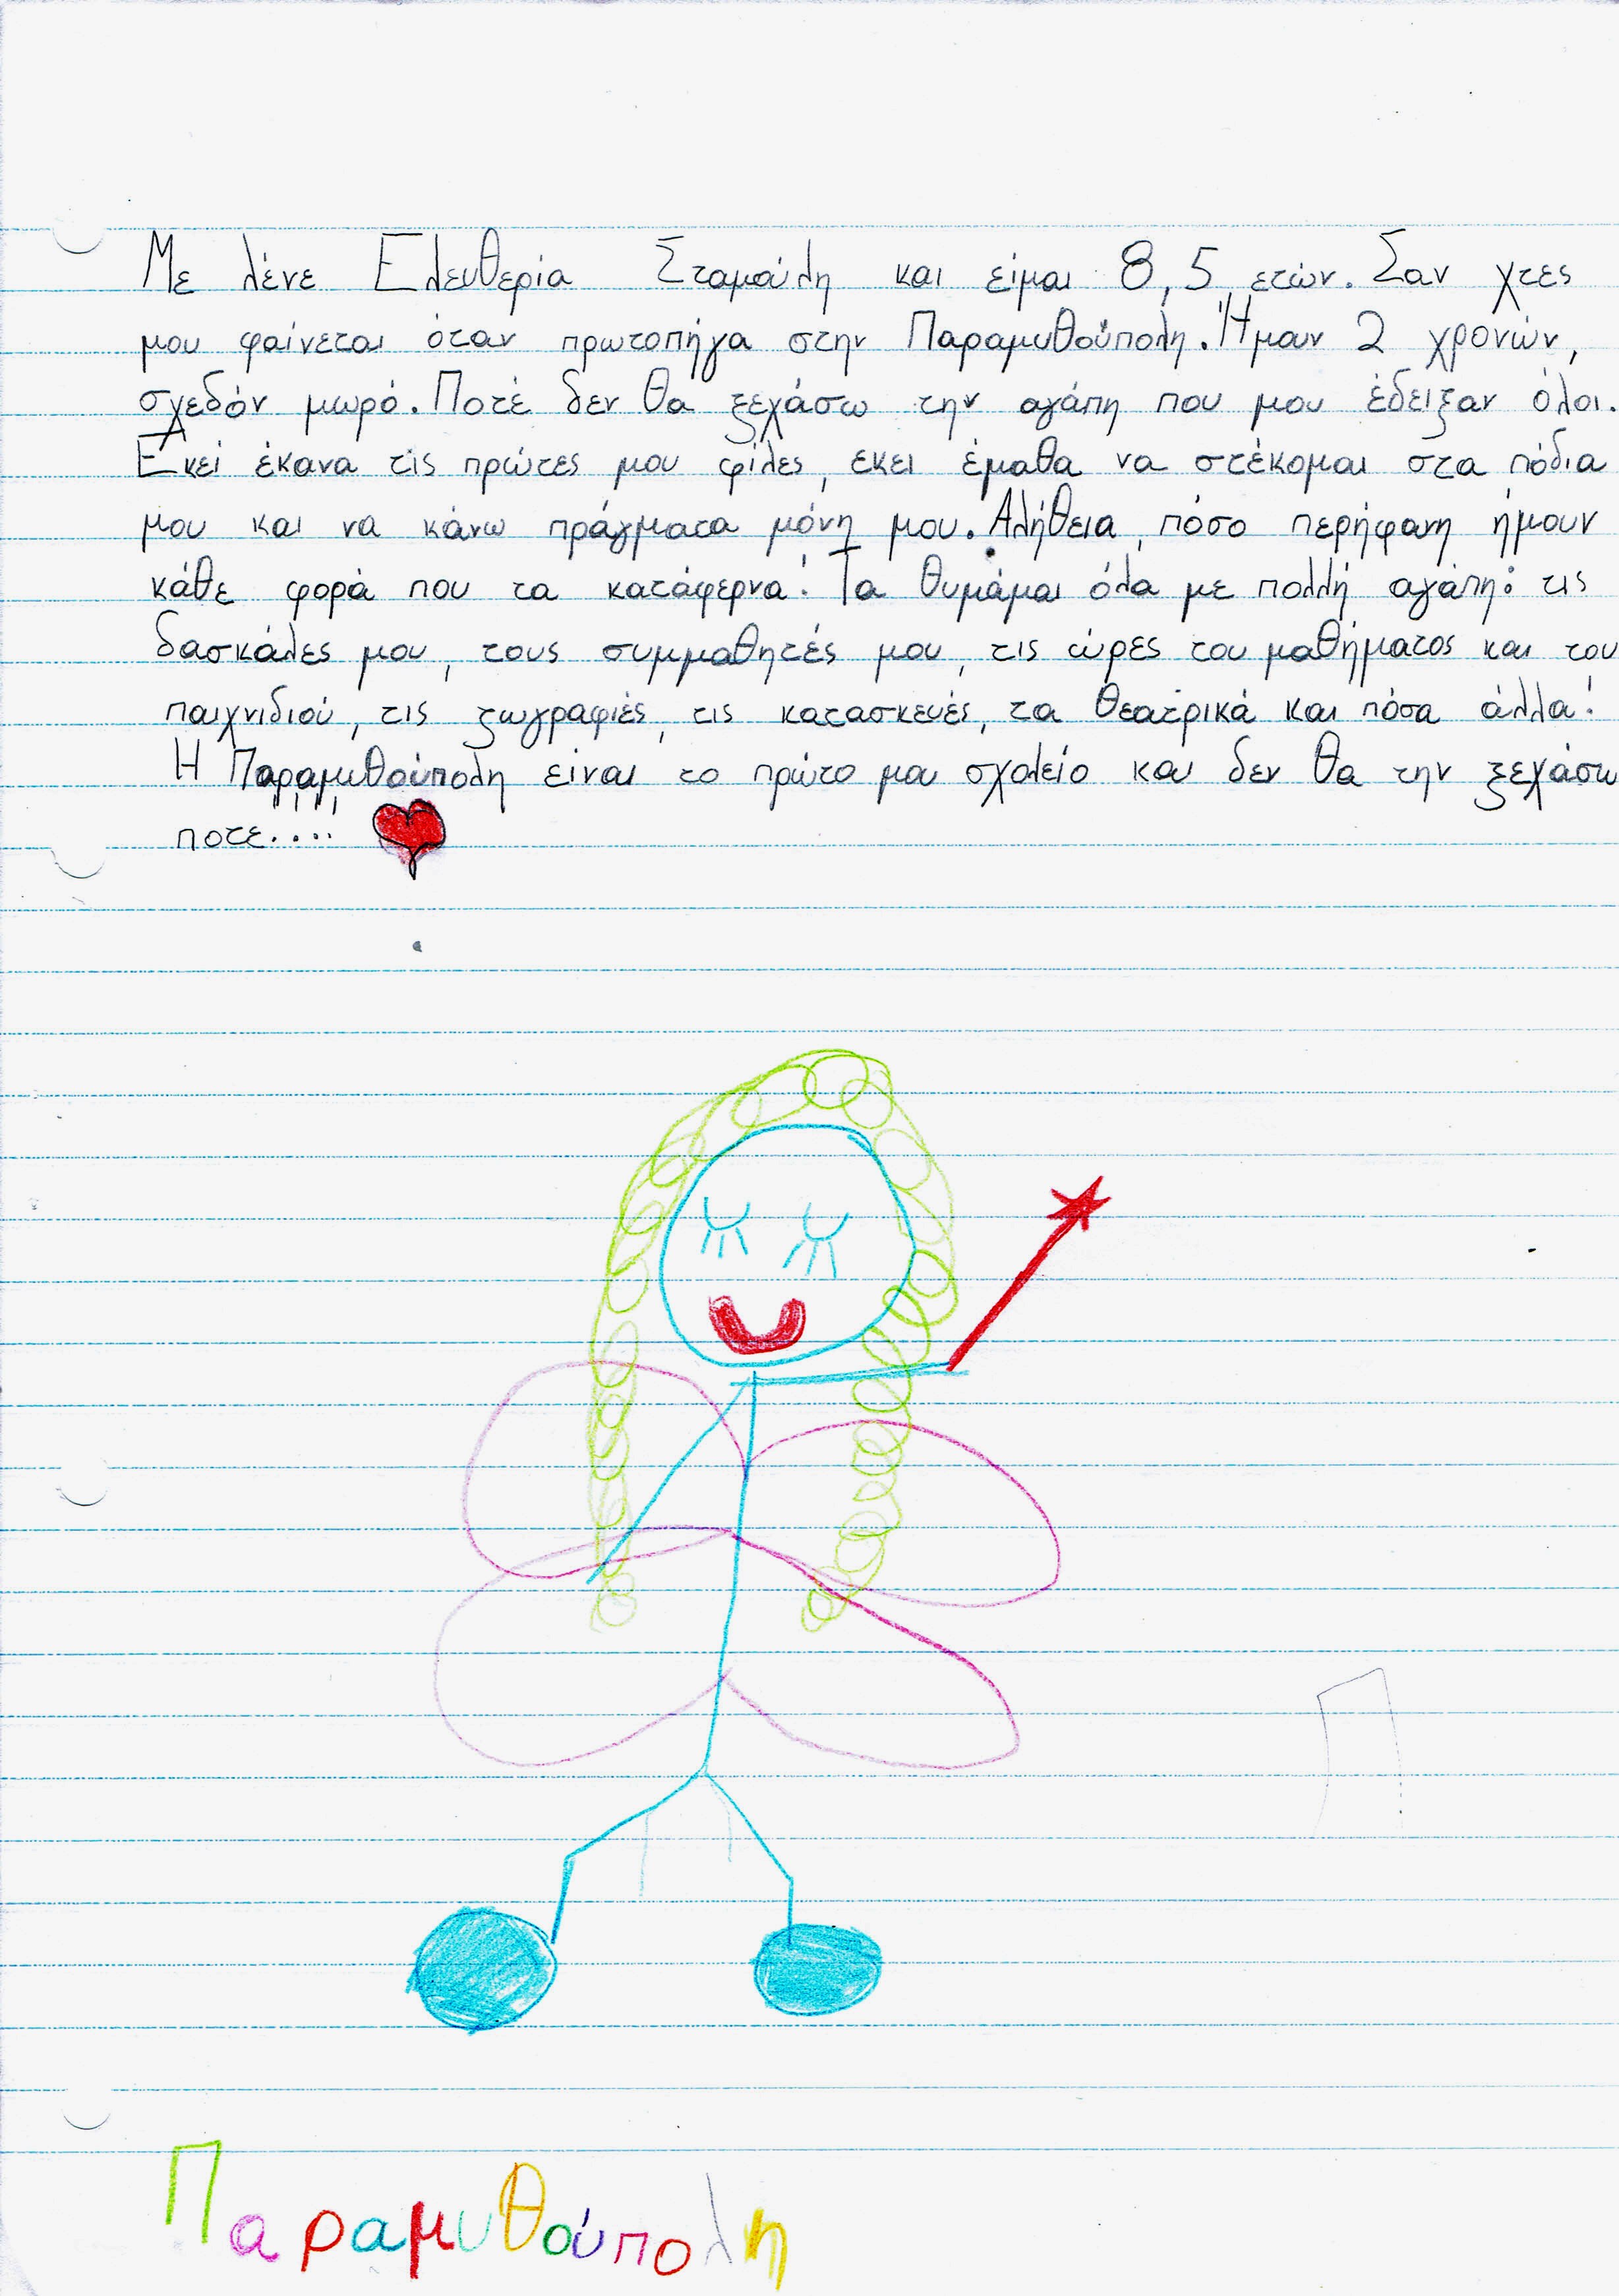 Με λένε Ελευθερία Σταμούλη και είμαι 8,5 ετών. Σαν χτες
μου φαίνεται όταν πρωτοπήγα στην Παραμυθούπολη. Ήμουν 2 χρονών,
σχεδόν μωρό. Ποτέ δεν θα ξεχάσω την αγάπη που μου έδειξαν όλοι.
Εκεί έκανα τις πρώτες μου φίλες, εκει έμαθα να στέκομαι στα πόδια
μου και να κάνω πράγματα μόνη μου. Αλήθεια, πόσο περήφανη ήμουν
κάθε φορά που τα κατάφερνα! Τα θυμάμαι όλα με πολλή αγάπη: τις
δασκάλες μου, τους συμμαθητές μου, τις ώρες του μαθήματος και του
παιχνιδιού, τις ζωγραφιές, τις κατασκευές, τα θεατρικά και πόσα άλλα!
Η Παραμυθούπολη είναι το πρώτο μου σχολείο και δεν θα την ξεχάσω
ποτε!!!!
Παραμυθούπολη